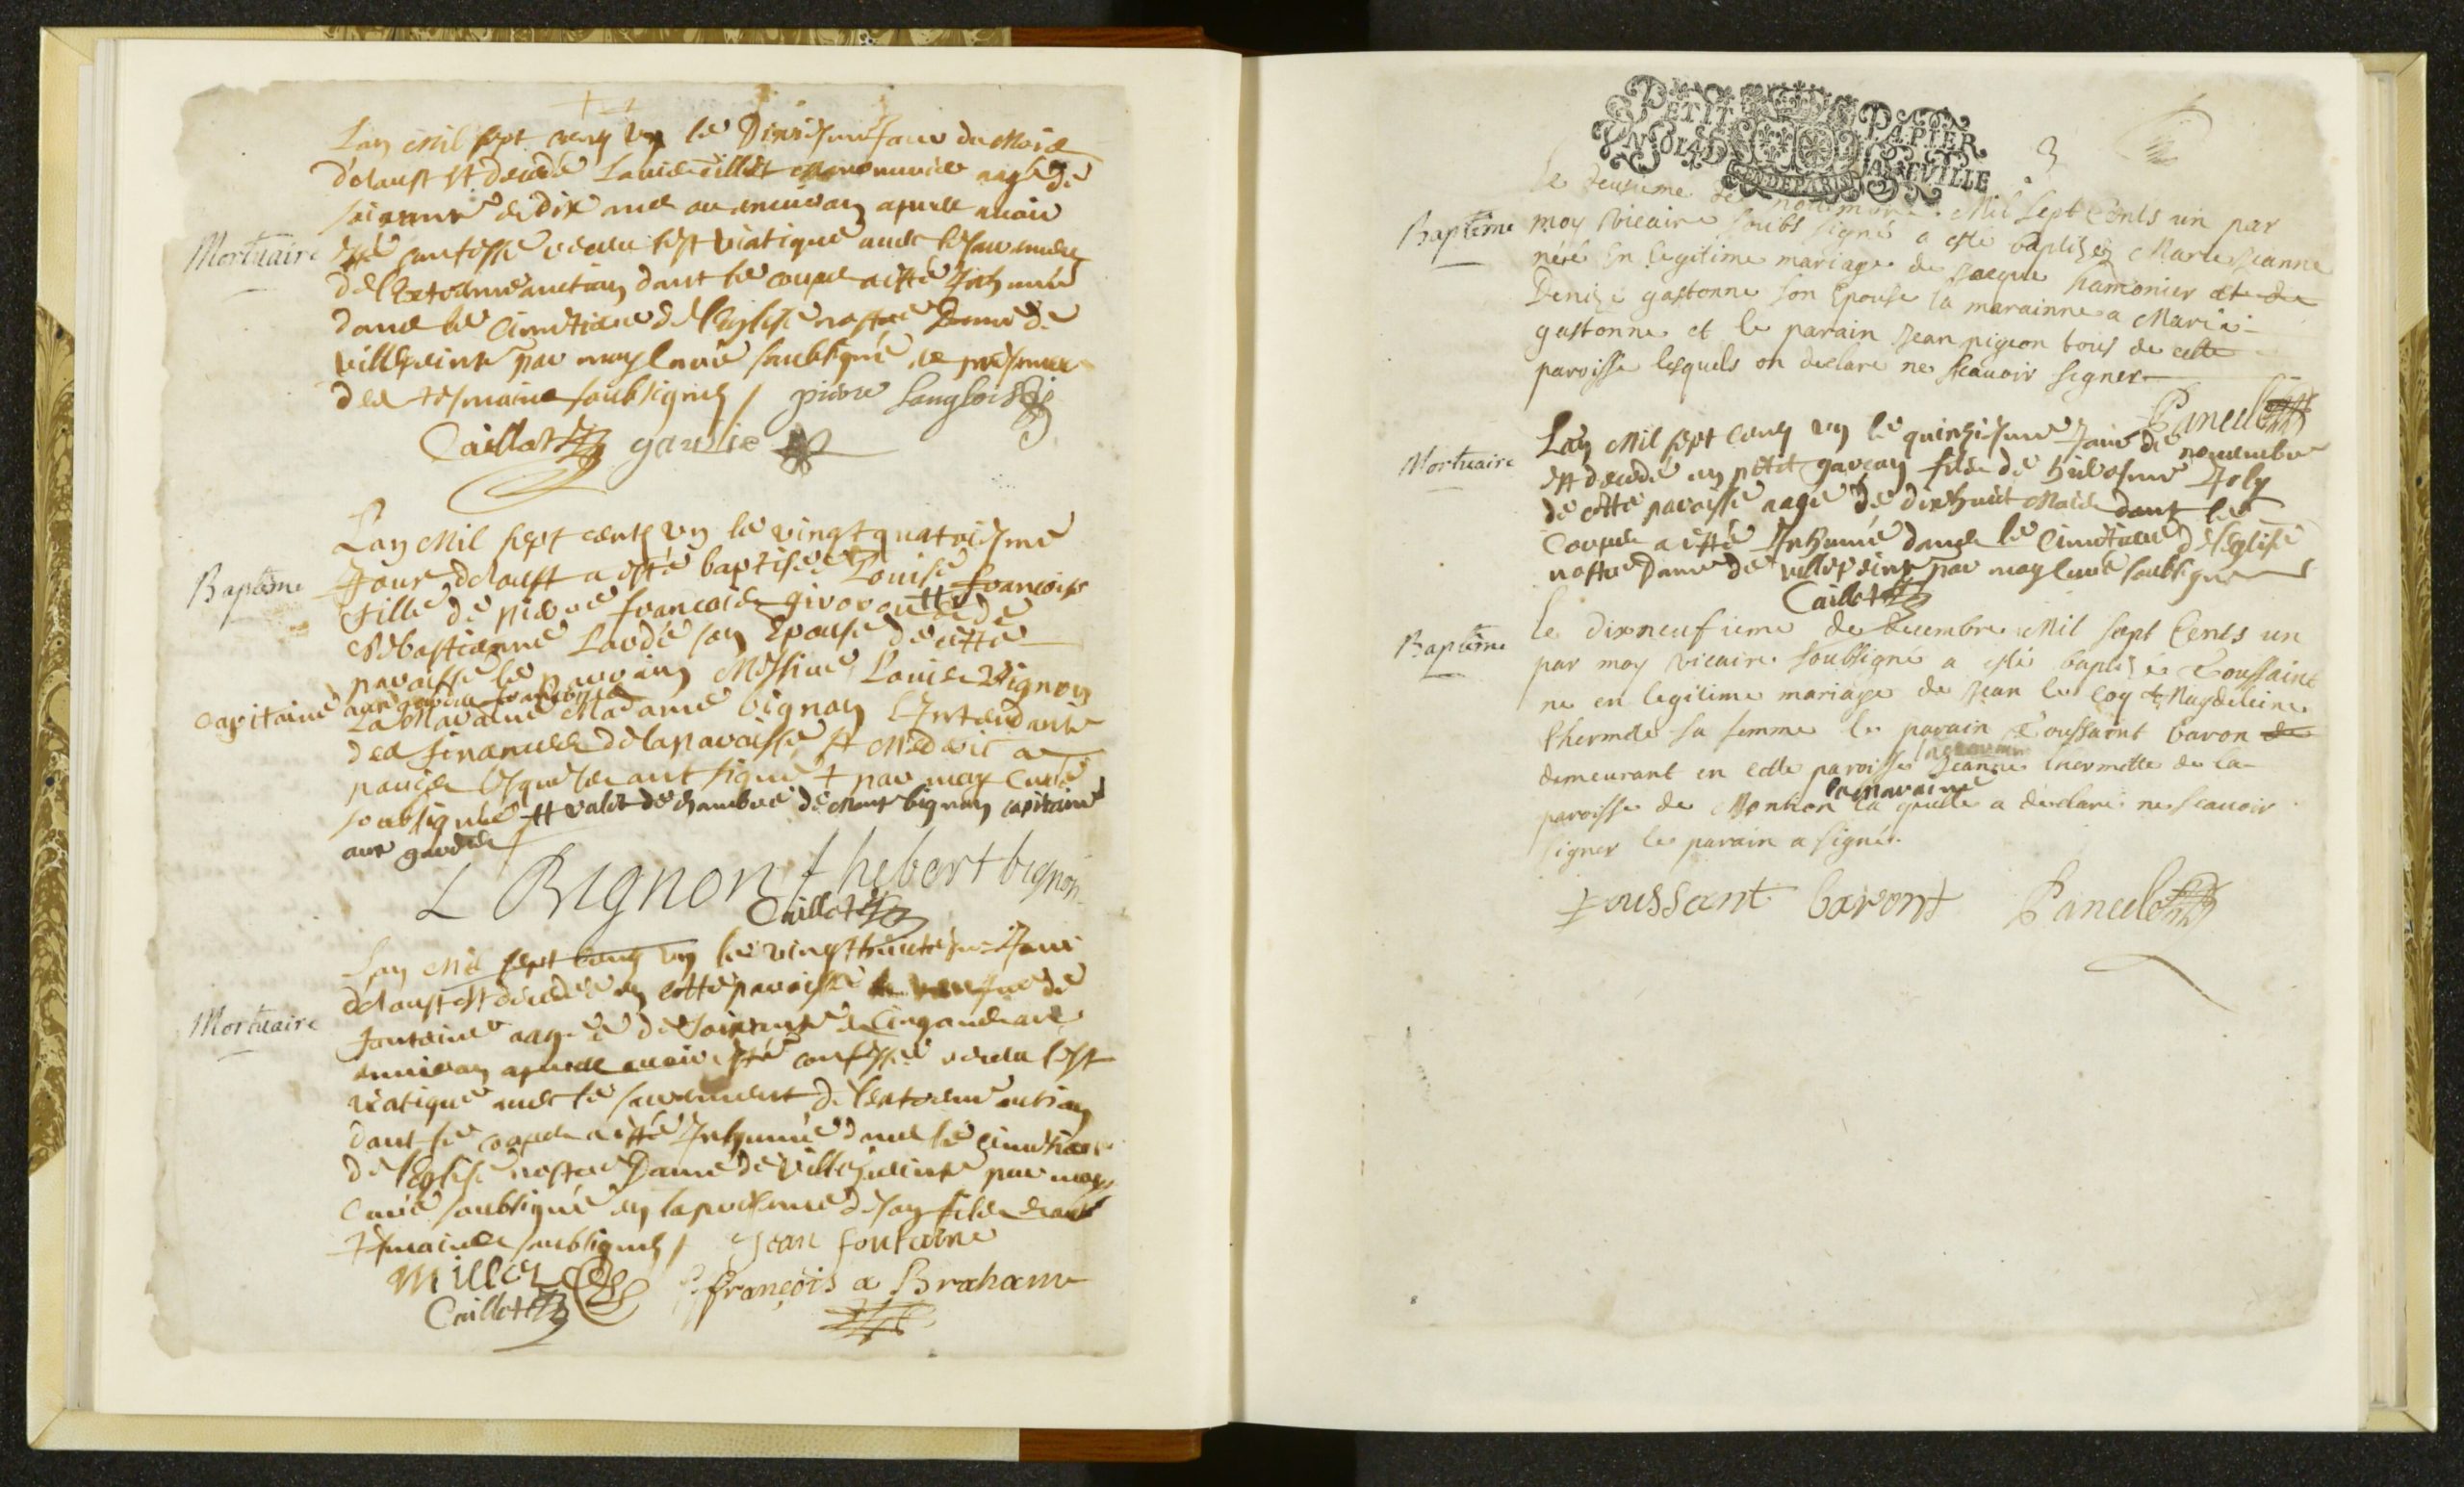 Mortuaire
Lan Mil sept cens un le dixiesme Jour du Mois
daoust est decedé Louis aagé de
soixante et dix ans ou environ apres avoir
esté confessé receu le st viatique avec le sacrement
de lextreme onction dont le corps a esté Inhumé
dans le Cimetiere de leglise nostre Dame de
villepeinte par moy Curé soubsigné en presence
des tesmoins soubsignés / pierre Langlois
Caillot garlie
Baptême
Lan Mil sept cents un le vingt quatriesme
Jour daoust a esté baptisée Louise francoise
fille de pierre francois et de
Sebastienne Lardé son Epouse de cette
paroisse le parrain Messire Louis Bignon
capitaine aux gardes francoises
La Maraine Madame bignon Lintendante
des finances de la paroisse st Medric a
paris lesquels ont signé + par moy Curé
soubsigné # valet de chambre de Monsr bignon capitaine
aux gardes
L Bignon f hebert bignon
Caillot
Mortuaire
Lan Mil sept cens un le vingt huitiesme Jour
daoust est decedée en cette paroisse la de
fontaine aagée de soixante et Cinq ans ou
environ apres avoir esté confessé receu le st
viatique avec le sacrement de lextreme onction
dont le corps a esté Inhumée dans le cimetiere
de leglise nostre Dame de villepeinte par moy
Curé soubsigné en la presence de son fils et
tesmoins soubsignés / Jean fontaine
Millet françois a Braham
Caillot
PETIT PAPIER
UN SOL 4 D LA FEUILLE
GEN DE PARIS
3
Baptême
le deusieme de novembre Mil sept Cents un par
moy vicaire soubs signé a esté baptizée Marie Jeanne
néé en legitime mariage de Jacque hamonier et de
Denize gastonne son Epouse la marainne a Marie
gastonne et le parain Jean pigeon tous de cette
paroisse lesquels on declare ne scavoir signer
Pancelot
Mortuaire
Lan Mil sept cens un le quinziesme Jour de novembre
est decedé un petit garçon fils de hierosme Joly
de cette paroisse aagé de dixhuict Mois dont le
Corps a esté Inhumé dans le Cimetiere de leglise
nostre Dame de villepeinte par moy Curé soubsigné
Caillot
Baptême
le dixneufieme de decembre Mil sept Cents un
par moy vicaire soubsigné a esté baptizé Toussaint
ne en legitime mariage de Jean le Coq et Magdeleine
thermele sa femme le parain Toussaint baron de
demeurant en cette paroisse Jeanne thermelle de la
la maraine
paroisse de la quelle a declaré ne scavoir
signer le parain a signé.
Toussant baront Pancelot